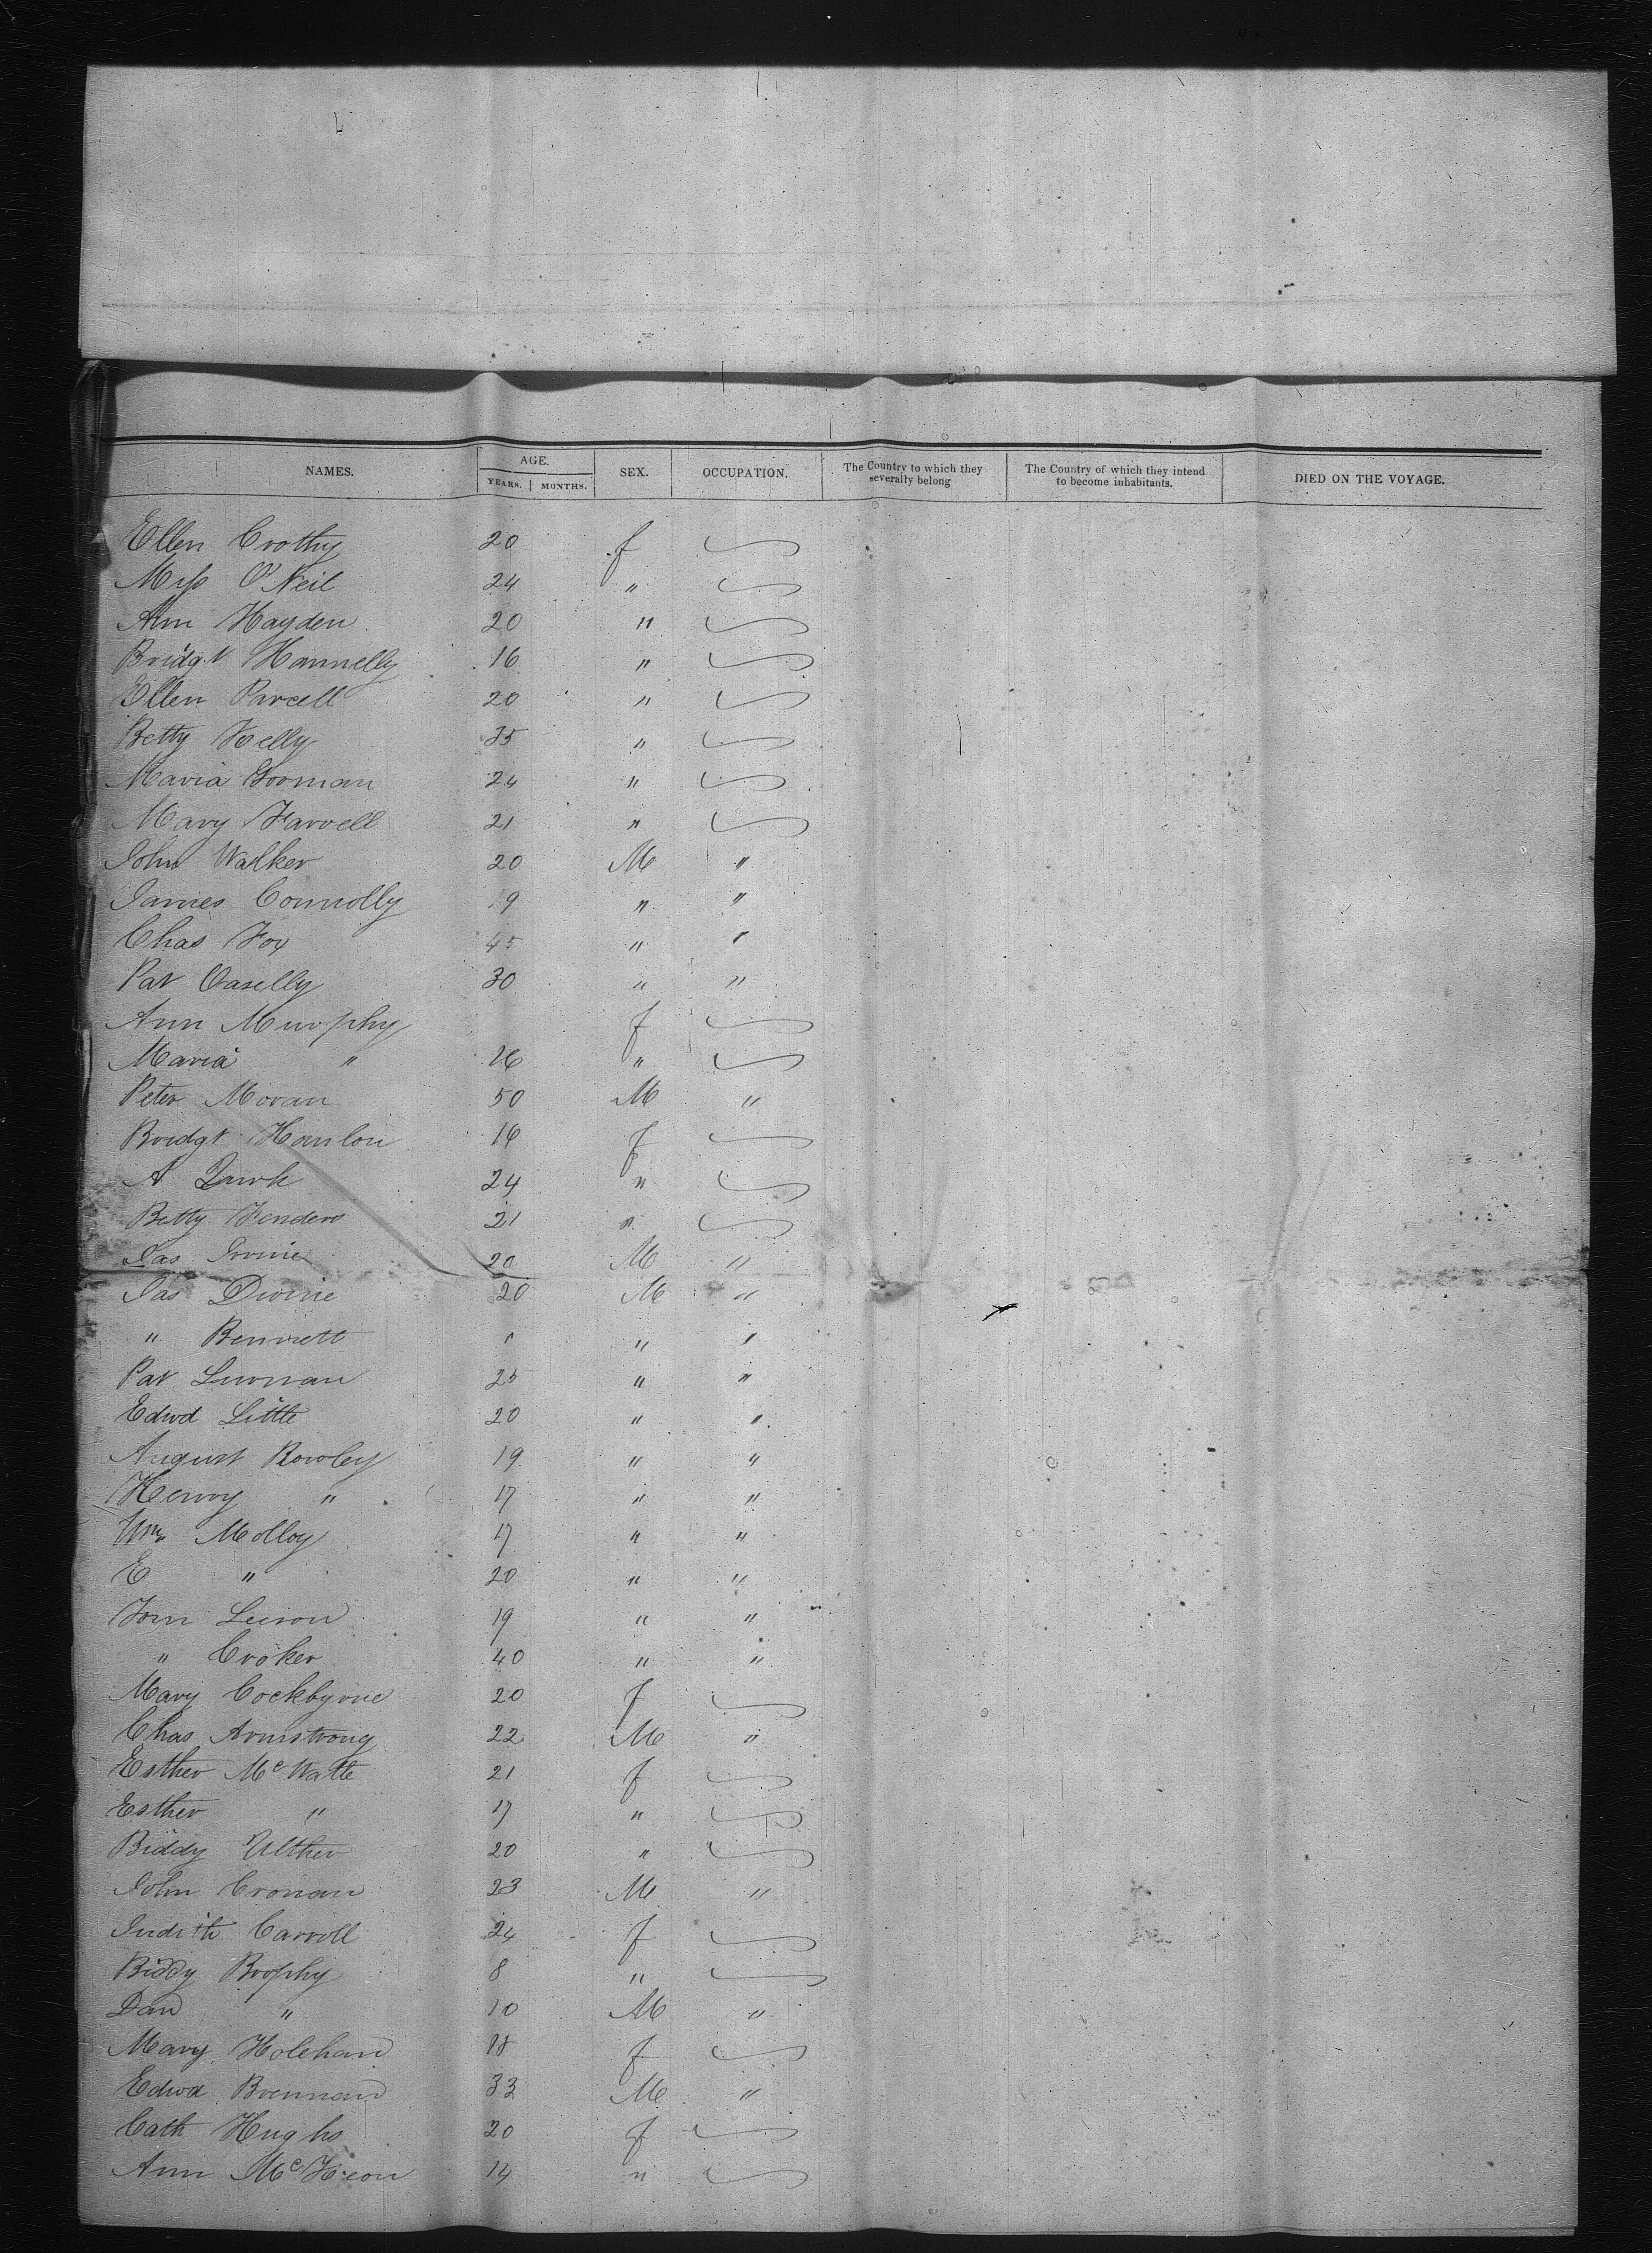 NAMES. AGE. YEARS. MONTHS. SEX. OCCUPATION. The Country to which they severally belong The Country of which they intend to become inhabitants. DIED ON THE VOYAGE.
Ellen Crothy 20 f
Miss O'Neil 24 "
Ann Hayden 20 "
Bridgt Hannelly 16 "
Ellen Parcell 20 "
Betty Kelly 35 "
Maria Gorman 24 "
Mary Farrell 21 "
John Walker 20 M "
James Connolly 19 " "
Chas Fox 45 " "
Pat Caselly 30 " "
Ann Murphy f
Maria " 16 "
Peter Moran 50 M "
Bridgt Hanlon 16 f
A 24 "
Betty Fenders 21 "
Jas Irvine 20 M "
Jas Divine 20 M "
" Bennett " " "
Pat 25 " "
Edwd Little 20 " "
August Rowley 19 " "
Henry " 17 " "
Wm Molloy 17 " "
E " 20 " "
Tom 19 " "
" Croker 40 " "
Mary Cockbyrne 20 f
Chas Armstrong 22 M "
Esther Mc Watte 21 f
Esther " 17 "
Biddy Ulther 20 "
John Cronan 23 M "
Judith Carroll 24 f
Biddy Brophy 8 "
Dan " 10 M "
Mary Holehan 18 f
Edwd Brennan 33 M "
Cath Hughs 20 f
Ann McKeon 14 "